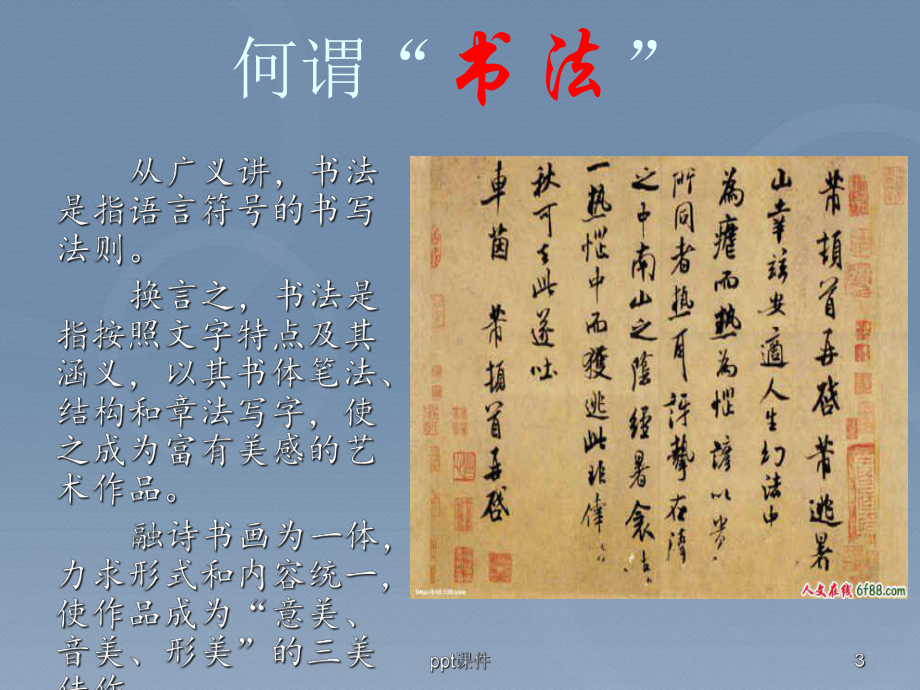 何谓“书法”
从广义讲，书法
是指语言符号的书写
法则。
换言之，书法是
指按照文字特点及其
涵义，以其书体笔法、
结构和章法写字，使
之成为富有美感的艺
术作品。
融诗书画为一体，
力求形式和内容统一，
使作品成为“意美、
音美、形美”的三美
佳作
芾頓首再啓芾逃暑
山幸兹安適人生幻法中
為瘧而熱為惱諺以貴
所同者熱耳訝挚在
之中南山之陰經暑衾
一熱惱中而獲逃此非
秋可去此遂吐
車茵 芾頓首再啓
人文在线 6f88.com
ppt课件
3